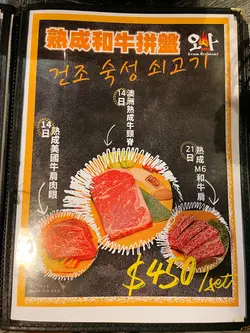 熟成和牛拼盤
와
건조 숙성 쇠고기
14日
澳洲熟成牛頸脊
14日
熟成美國牛肩肉眼
21日
熟成M6和牛肩
$450/set